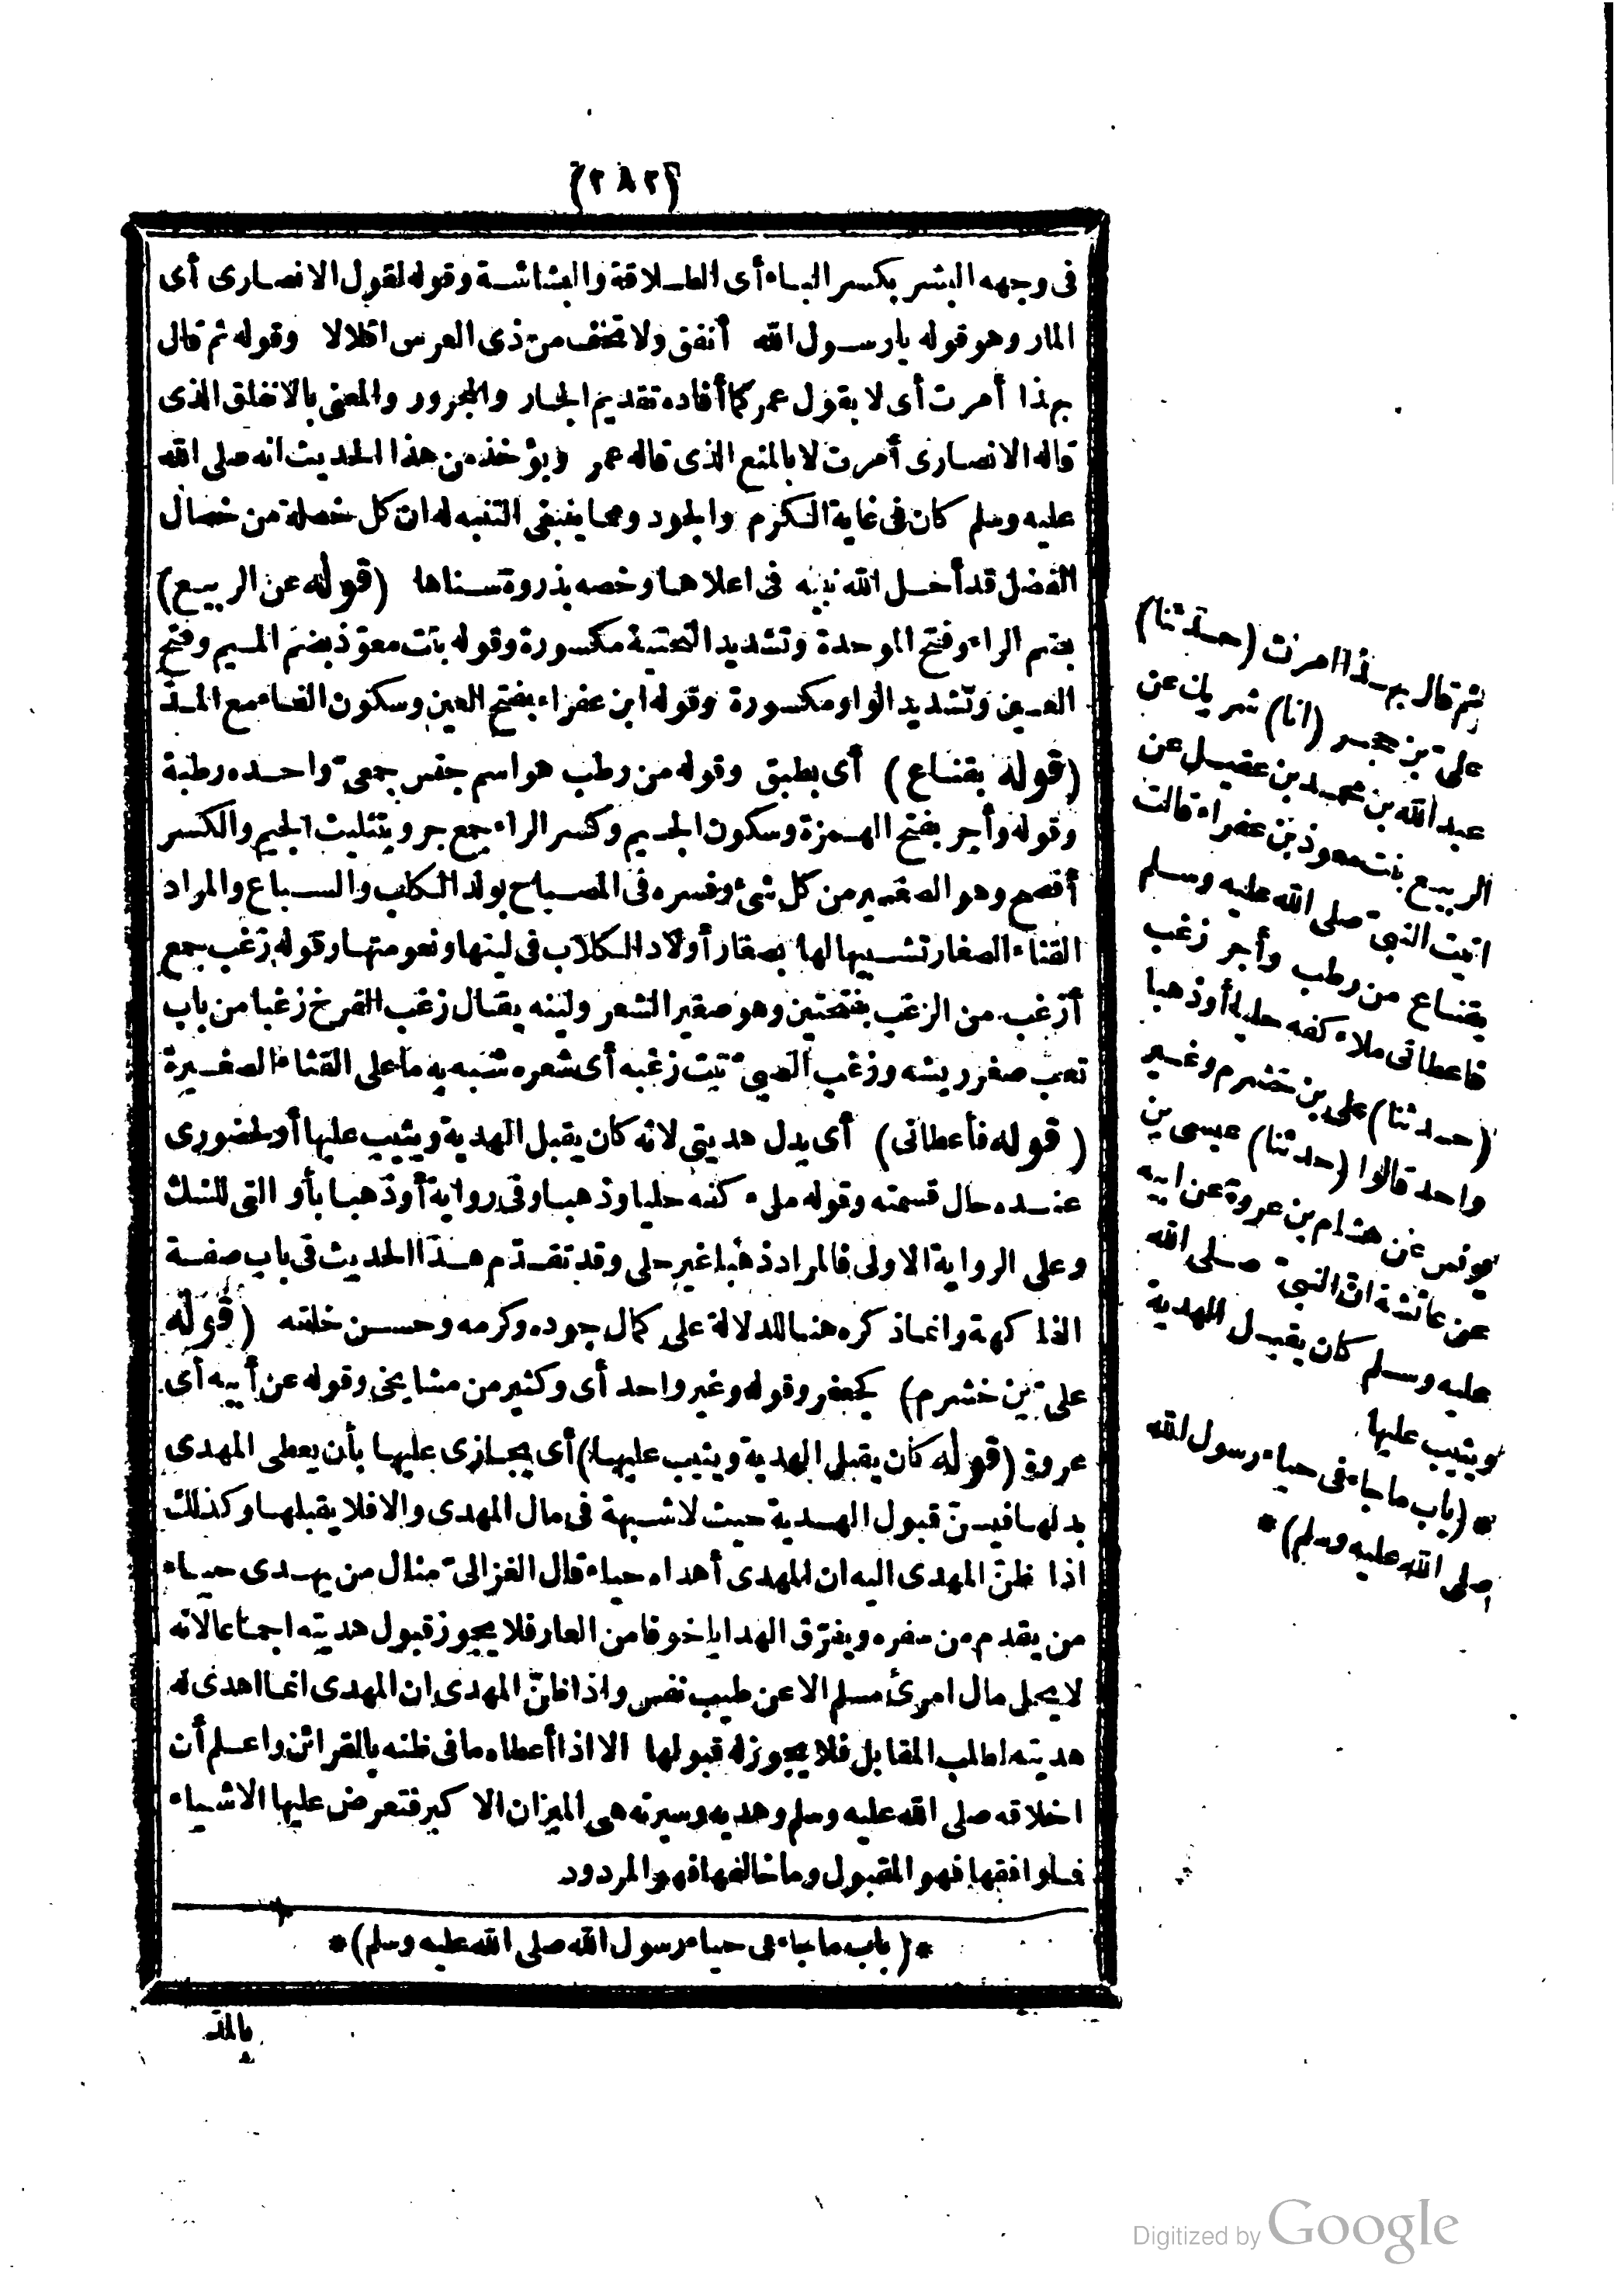 (٢٨٢)
فى وجهه البشر بكسر الباء أى الطلاقة والبشاشة وقوله لقول الانصارى أى
المار وهو قوله يارسول الله أنفق ولا تخف من ذى العرش اقلالا وقوله ثم قال
بهذا أمرت أى لا بقول عمر كما أفاده تقديم الجار والمجرور والمعنى بالانفاق الذى
قاله الانصارى أمرت لا بالمنع الذى قاله عمر ويؤخذ من هذا الحديث انه صلى الله
عليه وسلم كان فى غاية الكرم والجود ومما ينبغى التنبه له ان كل خصلة من خصال
الفضل قد أحل الله نبيه فى اعلاها وخصه بذروة سناها (قوله عن الربيع)
بضم الراء وفتح الموحدة وتشديد التحتية مكسورة وقوله بنت معوّذ بضم الميم وفتح
العين وتشديد الواو مكسورة وقوله ابن عفراء بفتح العين وسكون الفاء مع المدّ
(قوله بقناع) أى بطبق وقوله من رطب هو اسم جنس جمعىّ واحده رطبة
وقوله وأجر بفتح الهمزة وسكون الجيم وكسر الراء جمع جرو بتثليث الجيم والكسر
أفصح وهو الصغير من كل شئ وفسره فى المصباح بولد الكلب والسباع والمراد
القثاء الصغار تشبيها لها بصغار أولاد الكلاب فى لينها ونعومتها وقوله زغب جمع
أزغب من الزغب بفتحتين وهو صغير الشعر ولينه يقال زغب الفرخ زغبا من باب
تعب صغر ريشه وزغب الصبىّ نبت زغبه أى شعره شبه به ما على القثاء الصغيرة
(قوله فأعطانى) أى بدل هديتى لانه كان يقبل الهدية ويثيب عليها أو لحضورى
عنده حال قسمته وقوله ملء كفه حليا وذهبا وفى رواية أو ذهبا بأو التى للشك
وعلى الرواية الاولى فالمراد ذهبا غير حلى وقد تقدّم هذا الحديث فى باب صفة
الفاكهة وانما ذكره هنا للدلالة على كمال جوده وكرمه وحسن خلقه (قوله
علىّ بن خشرم) كجعفر وقوله وغير واحد أى وكثير من مشايخى وقوله عن أبيه أى
عروة (قوله كان يقبل الهدية ويثيب عليها) أى يجازى عليها بأن يعطى المهدى
بدلها فيسنّ قبول الهدية حيث لا شبهة فى مال المهدى والا فلا يقبلها وكذلك
اذا ظنّ المهدى اليه ان المهدى أهداه حياء قال الغزالىّ مثال من يهدى حياء
من يقدم من سفره ويفرّق الهدايا خوفا من العار فلا يجوز قبول هديته اجماعا لانه
لا يحل مال امرئ مسلم الا عن طيب نفس واذا ظنّ المهدى ان المهدى انما اهدى له
هديته لطلب المقابل فلا يجوز له قبولها الا اذا أعطاه ما فى ظنه بالقرائن واعلم أن
اخلاقه صلى الله عليه وسلم وهديه وسيرته هى الميزان الاكبر فتعرض عليها الاشياء
فما وافقها فهو المقبول وما خالفها فهو المردود
*(باب ماجاء فى حياء رسول الله صلى الله عليه وسلم)*
ثم قال بهذا امرت (حدثنا)
علىّ بن حجر (انا) شريك عن
عبد الله بن محمد بن عقيل عن
الربيع بنت معوذ بن عفراء قالت
اتيت النبىّ صلى الله عليه وسلم
بقناع من رطب وأجر زغب
فاعطانى ملاء كفه حليا أو ذهبا
(حدثنا) على بن خشرم وغير
واحد قالوا (حدثنا) عيسى بن
يونس عن هشام بن عروة عن ابيه
عن عائشة انّ النبىّ صلى الله
عليه وسلم كان يقبل الهدية
ويثيب عليها
*(باب ماجاء فى حياء رسول الله
صلى الله عليه وسلم)*
Digitized by Google